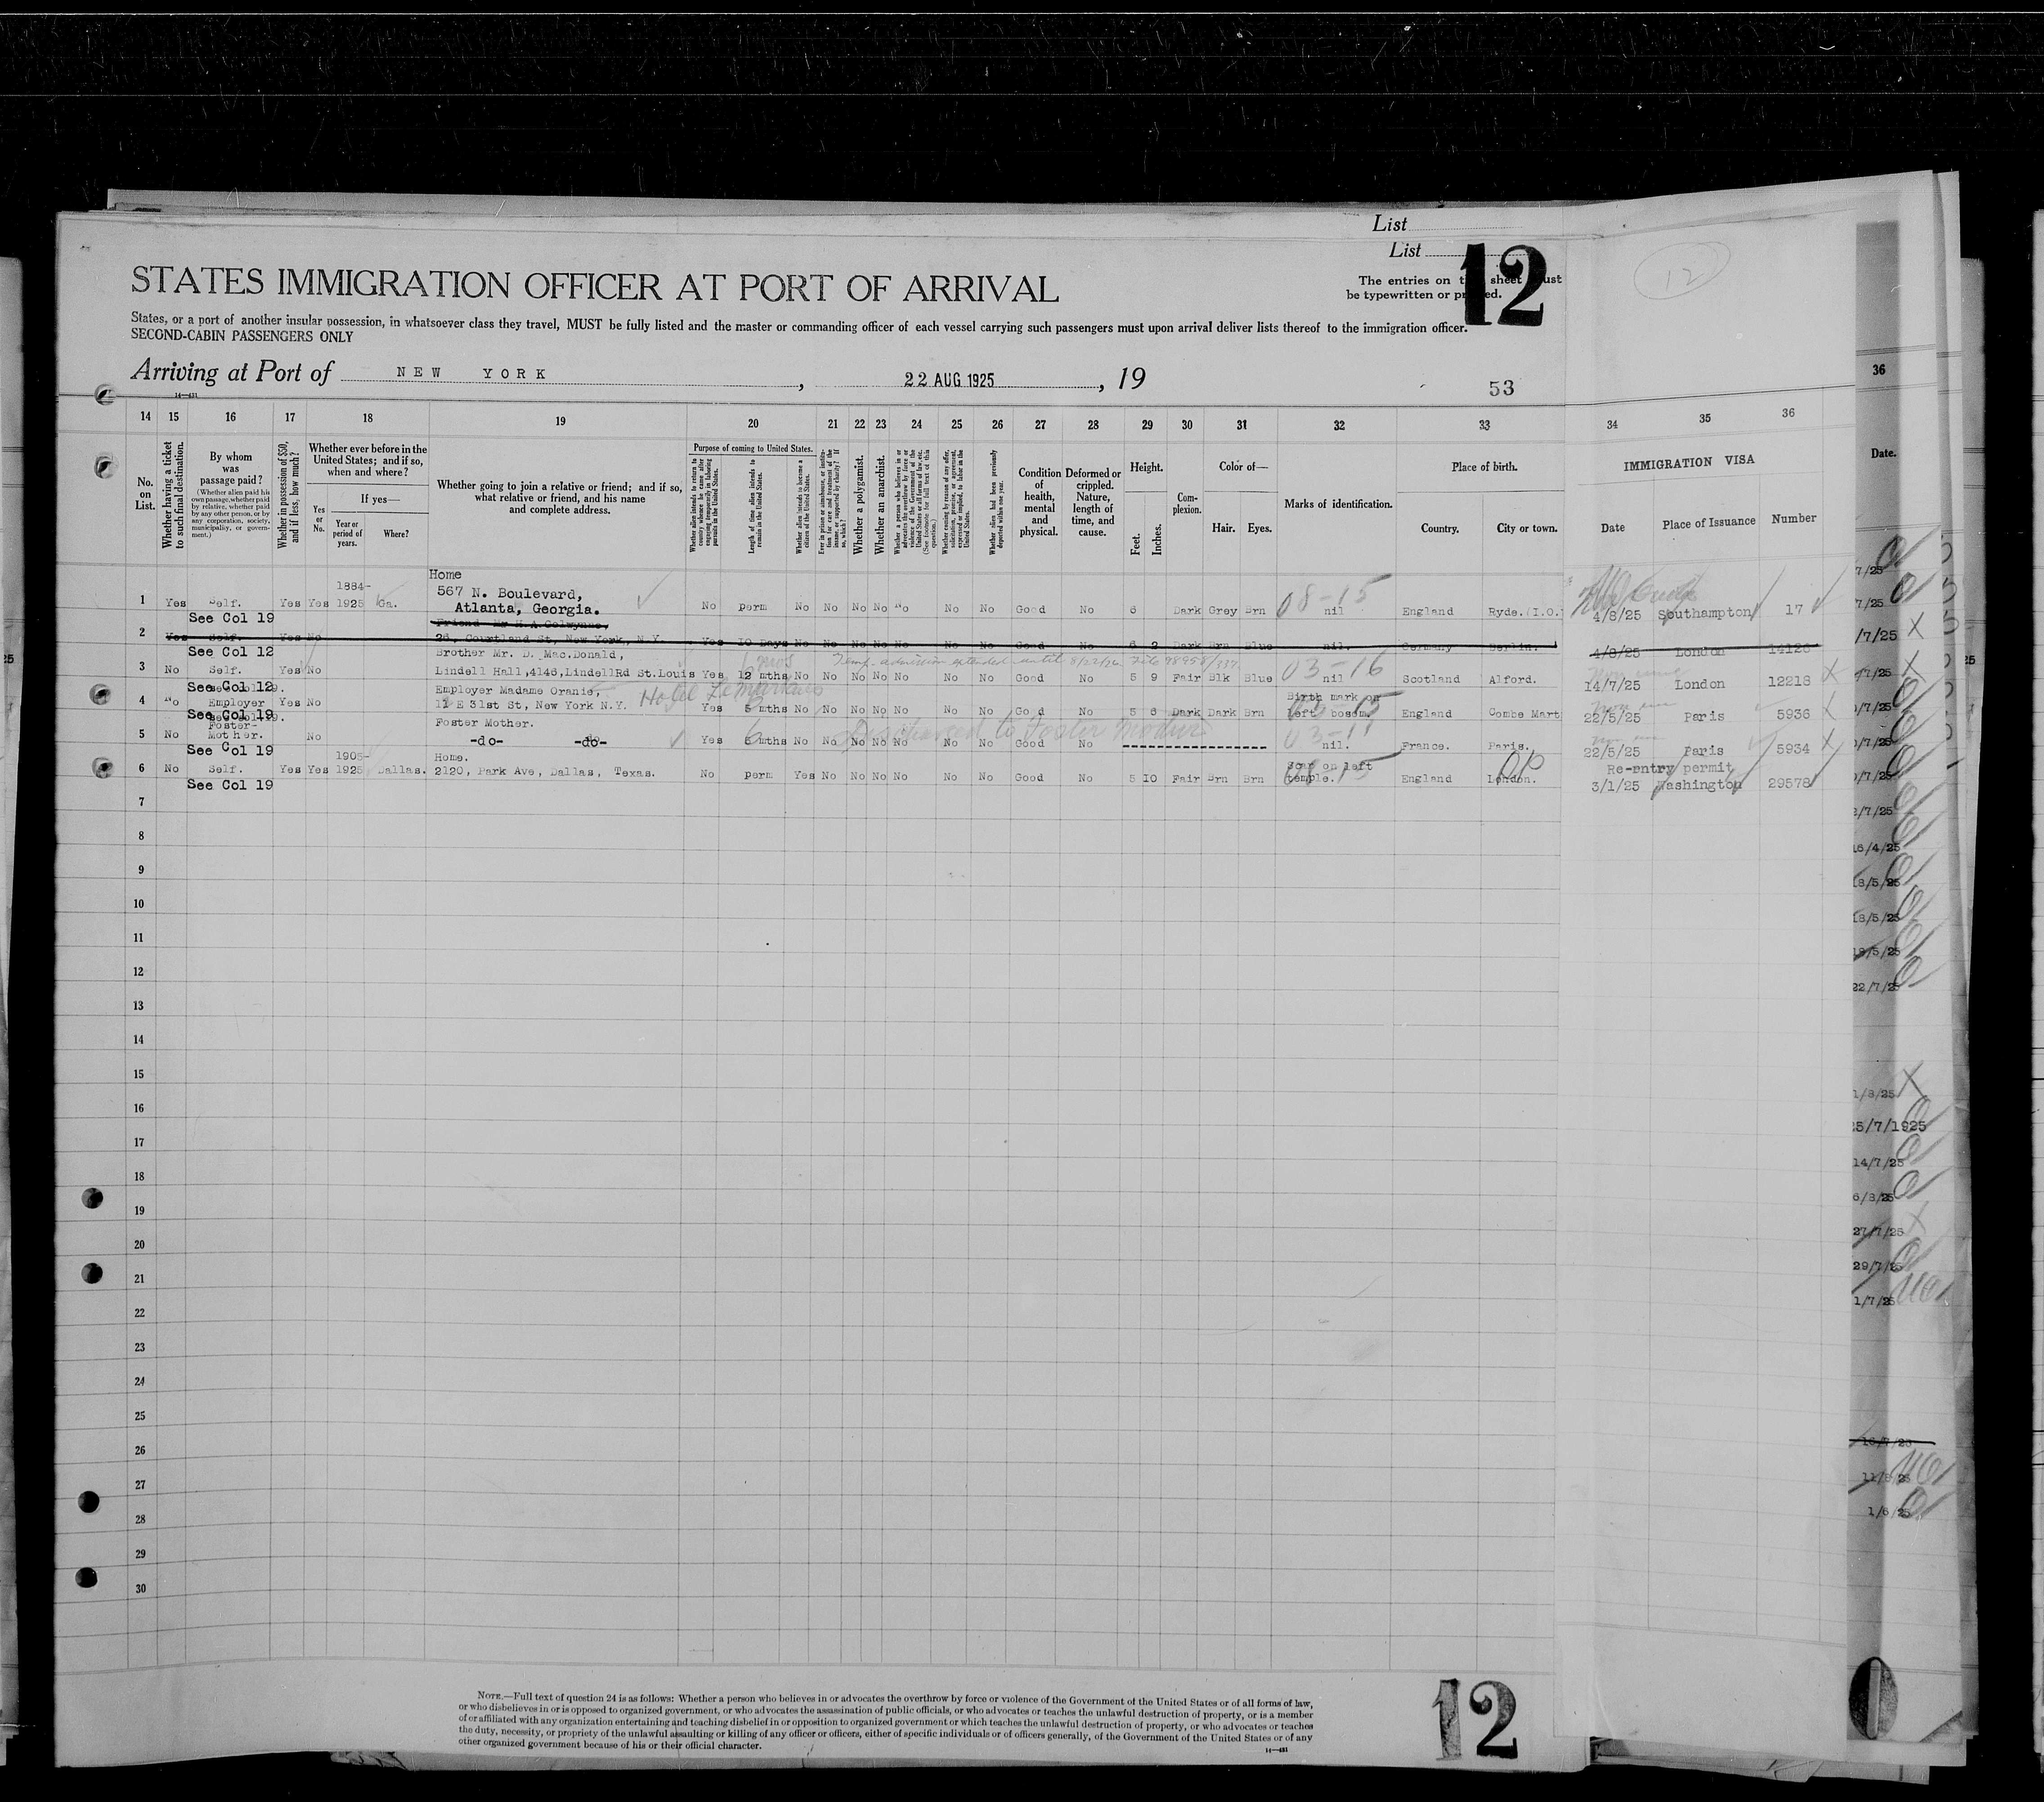 List
List
12
12
The entries on t sheet ust
be typewritten or p ed.
STATES IMMIGRATION OFFICER AT PORT OF ARRIVAL
States, or a port of another insular possession, in whatsoever class they travel, MUST be fully listed and the master or commanding officer of each vessel carrying such passengers must upon arrival deliver lists thereof to the immigration officer.
SECOND-CABIN PASSENGERS ONLY
Arriving at Port of NEW YORK, 22 AUG 1925, 19
53
14—431
14 15 16 17 18 19 20 21 22 23 24 25 26 27 28 29 30 31 32 33 34 35 36
36
No. on List.
Whether having a ticket to such final destination.
By whom was passage paid?
(Whether alien paid his own passage, whether paid by relative, whether paid by any other person, or by any corporation, society, municipality, or government.)
Whether in possession of $50, and if less, how much?
Whether ever before in the United States; and if so, when and where?
Yes or No.
If yes—
Year or period of years.
Where?
Whether going to join a relative or friend; and if so, what relative or friend, and his name and complete address.
Purpose of coming to United States.
Whether alien intends to return to country whence he came after engaging temporarily in laboring pursuits in the United States.
Length of time alien intends to remain in the United States.
Whether alien intends to become a citizen of the United States.
Ever in prison or almshouse, or institution for care and treatment of the insane, or supported by charity? If so, which?
Whether a polygamist.
Whether an anarchist.
Whether a person who believes in or advocates the overthrow by force or violence of the Government of the United States or all forms of law, etc. (See footnote for full text of this question.)
Whether coming by reason of any offer, solicitation, promise, or agreement, expressed or implied, to labor in the United States.
Whether alien had been previously deported within one year.
Condition of health, mental and physical.
Deformed or crippled. Nature, length of time, and cause.
Height.
Feet. Inches.
Complexion.
Color of—
Hair. Eyes.
Marks of identification.
Place of birth.
Country. City or town.
IMMIGRATION VISA
Date Place of Issuance Number
Date.
1 Yes Self. Yes Yes 1884-1925 Ga. Home 567 N. Boulevard, Atlanta, Georgia. No perm No No No No No No No Good No 6 Dark Grey Brn nil 08-15 England Ryde.(I.O. 4/8/25 Southampton 17
See Col 19
2 Yes Self. Yes No Friend Mr H.A.Colwynne, 26, Courtland St, New York, N.Y. Yes 10 Days No No No No No No No Good No 6 2 Dark Brn Blue nil. Germany Berlin. 4/8/25 London 14126
See Col 12
3 No Self. Yes No Brother Mr. D. Mac.Donald, Lindell Hall,4146,LindellRd St.Louis Yes 12 mths No No No No No No No Good No 5 9 Fair Blk Blue nil 03-16 Scotland Alford. 14/7/25 London 12218
6 mos Temp. admission extended until 8/22/26 File 98958/337
See Col 12
4 No Employer Yes No Employer Madame Oranie, 12 E 31st St, New York N.Y. Yes 5 mths No No No No No No No Good No 5 6 Dark Dark Brn Birth mark on left bosom. England Combe Mart 22/5/25 Paris 5936
See Col 19
5 No Foster-Mother. No Foster Mother. -do- -do- Yes 6 mths No No No No No No No Good No nil. 03-11 France. Paris. 22/5/25 Paris 5934
Discharged to Foster Mother
See Col 19
6 No Self. Yes Yes 1905-1925 Dallas. Home. 2120, Park Ave, Dallas, Texas. No perm Yes No No No No No No Good No 5 10 Fair Brn Brn Scar on left temple. England London. Re-entry permit 3/1/25 Washington 29578
See Col 19
7
8
9
10
11
12
13
14
15
16
17
18
19
20
21
22
23
24
25
26
27
28
29
30
7/25
7/25
/7/25
/7/25
/7/25
/7/25
/7/25
2/7/25
16/4/25
18/5/25
18/5/25
18/5/25
22/7/25
1/8/25
25/7/1925
14/7/25
6/8/25
27/7/25
29/7/25
1/7/25
11/8/25
1/6/25
NOTE.—Full text of question 24 is as follows: Whether a person who believes in or advocates the overthrow by force or violence of the Government of the United States or of all forms of law,
or who disbelieves in or is opposed to organized government, or who advocates the assassination of public officials, or who advocates or teaches the unlawful destruction of property, or is a member
of or affiliated with any organization entertaining and teaching disbelief in or opposition to organized government or which teaches the unlawful destruction of property, or who advocates or teaches
the duty, necessity, or propriety of the unlawful assaulting or killing of any officer or officers, either of specific individuals or of officers generally, of the Government of the United States or of any
other organized government because of his or their official character.
14—431
12